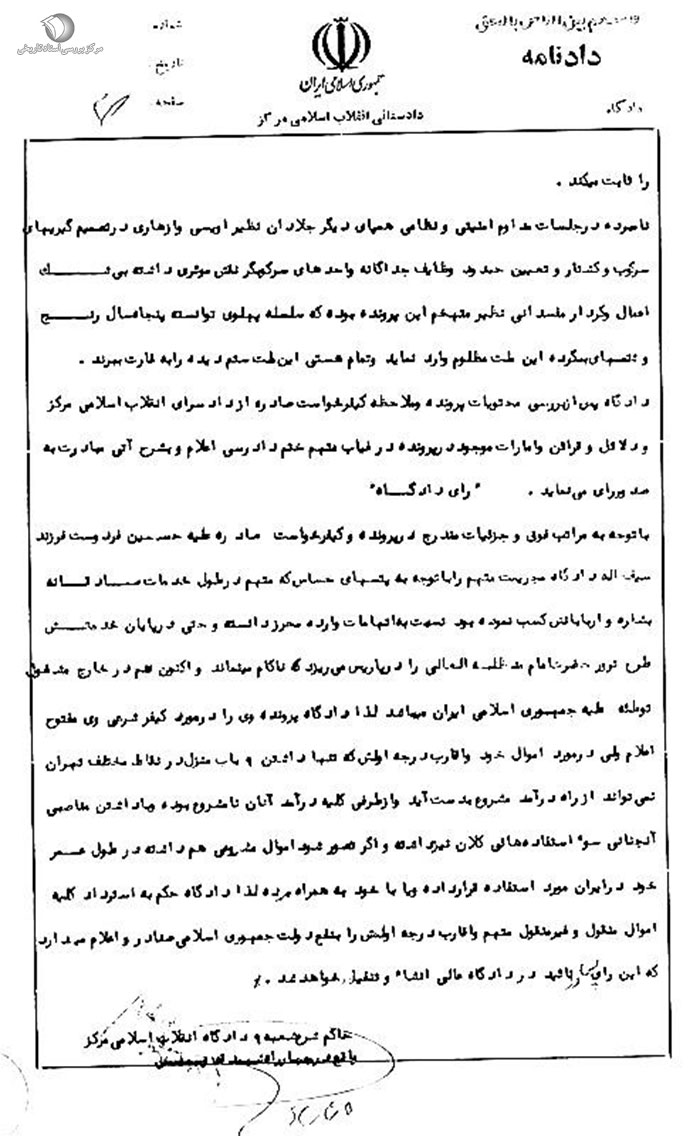 مرکز بررسی اسناد تاریخی
دادنامه
شماره
تاریخ
صفحه
جمهوری اسلامی ایران
دادستانی انقلاب اسلامی مرکز
دادگاه
را ثابت میکند .
نامبرده در جلسات مداوم امنیتی و نظامی همپای دیگر جلادان نظیر اویسی و ازهاری در تصمیم گیریهای
سرکوب و کشتار و تعیین حدود وظایف جداگانه واحدهای سرکوبگر نقش موثری داشته بی شک
اعمال و کردار مفسدانی نظیر متهم این پرونده بوده که سلسله پهلوی توانسته پنجاه سال رنج
و ستمهای بیکرده این ملت مظلوم وارد نماید و تمام هستی این ملت ستمدیده را به غارت ببرند .
دادگاه پس از بررسی محتویات پرونده و ملاحظه کیفرخواست صادره از دادسرای انقلاب اسلامی مرکز
و دلائل و قرائن و امارات موجود در پرونده در غیاب متهم ختم دادرسی اعلام و بشرح آتی مبادرت به
صدور رای می نماید . "رای دادگاه"
با توجه به مراتب فوق و جزئیات مندرج در پرونده و کیفرخواست صادره علیه حسین فردوست فرزند
سیف اله دادگاه مجرمیت متهم را با توجه به پستهای حساس که متهم در طول خدمات صادقانه
بشاه و اربابانش کسب نموده بود نسبت به اتهامات وارده محرز دانسته و حتی در پایان خدمتش
طرح ترور حضرت امام مدظله العالی را در پاریس می ریزد که ناکام میماند و اکنون هم در خارج مشغول
توطئه علیه جمهوری اسلامی ایران میباشد لذا دادگاه پرونده وی را در مورد کیفر شرعی وی مفتوح
اعلام ولی در مورد اموال خود و اقارب درجه اولش که تنها داشتن ۹ باب منزل در نقاط مختلف تهران
نمی تواند از راه درآمد مشروع بدست آید و از طرفی کلیه درآمد آنان نامشروع بوده و با داشتن مناصبی
آنچنانی سوء استفاده هائی کلان نیز داشته و اگر تصور شود اموال مشروعی هم داشته در طول عمر
خود در ایران مورد استفاده قرار داده و یا با خود به همراه برده لذا دادگاه حکم به استرداد کلیه
اموال منقول و غیر منقول متهم و اقارب درجه اولش را بنفع دولت جمهوری اسلامی صادر و اعلام میدارد
که این رای پس از تائید در دادگاه عالی انشاء و تنفیذ خواهد شد . ٪
حاکم شرع شعبه ۹ دادگاه انقلاب اسلامی مرکز